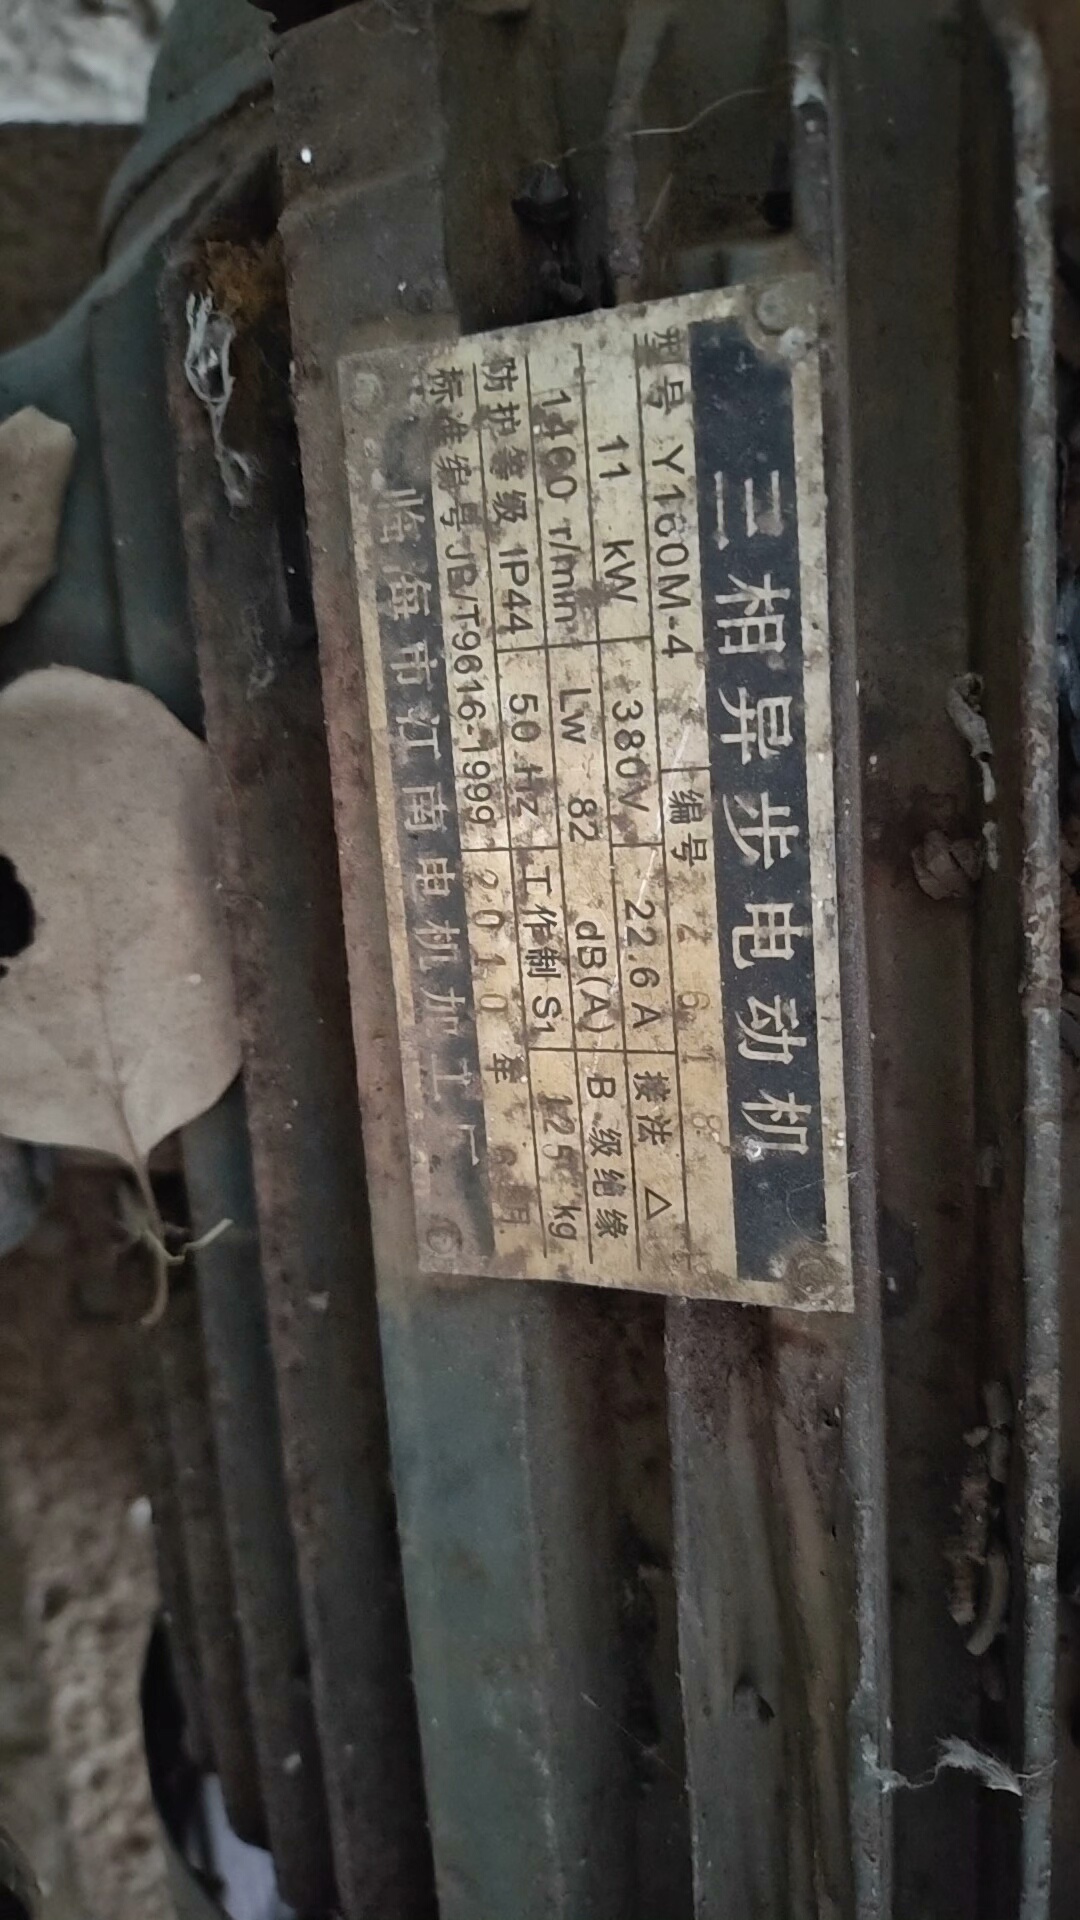 三相异步电动机
型号 Y160M-4 编号 2618
11 kW 380V 22.6A 接法 △
1460 r/min LW 82 dB(A) B 级绝缘
防护等级 IP44 50 Hz 工作制 S1 125 kg
标准编号 JB/T9616-1999 2010 年 6 月
临海市江南电机加工厂